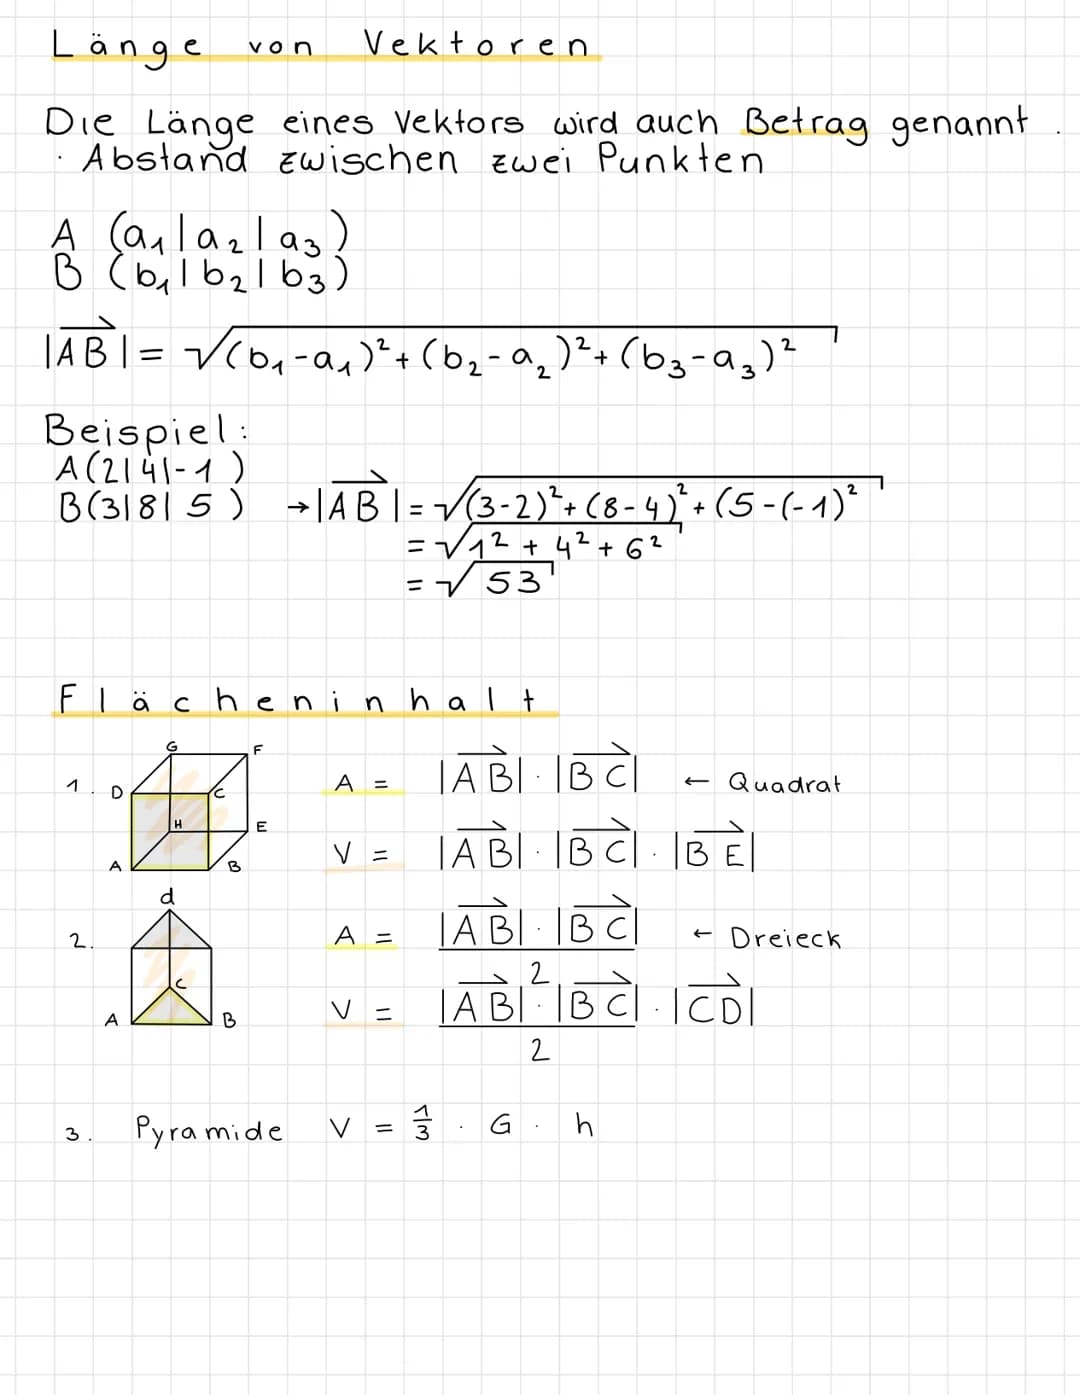 Länge von Vektoren
Die Länge eines Vektors wird auch Betrag genannt.
· Abstand zwischen zwei Punkten
A (a₁|a₂|a₃)
B (b₁|b₂|b₃)
|AB⃗| = √(b₁-a₁)²+(b₂-a₂)²+(b₃-a₃)²
Beispiel:
A(2|4|-1)
B(3|8|5) → |AB⃗| = √(3-2)²+(8-4)²+(5-(-1)²
= √1²+4²+6²
= √53
Flächeninhalt
G F
1. D C A = |AB⃗|·|BC⃗| ← Quadrat
H E
A B V = |AB⃗|·|BC⃗|·|BE⃗|
d
2. A = |AB⃗|·|BC⃗| ← Dreieck
2
C
A B V = |AB⃗|·|BC⃗|·|CD⃗|
2
3. Pyramide V = 1/3 · G · h